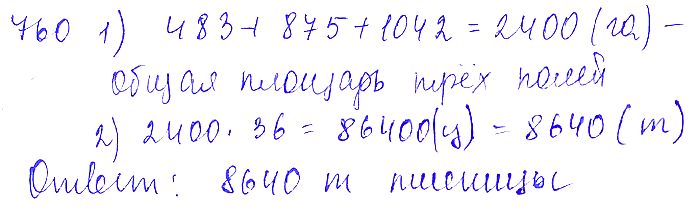 760 1) 483 + 875 + 1042 = 2400 (га) –
общая площадь трёх полей
2) 2400 · 36 = 86400 (ц) = 8640 (т)
Ответ: 8640 т пшеницы